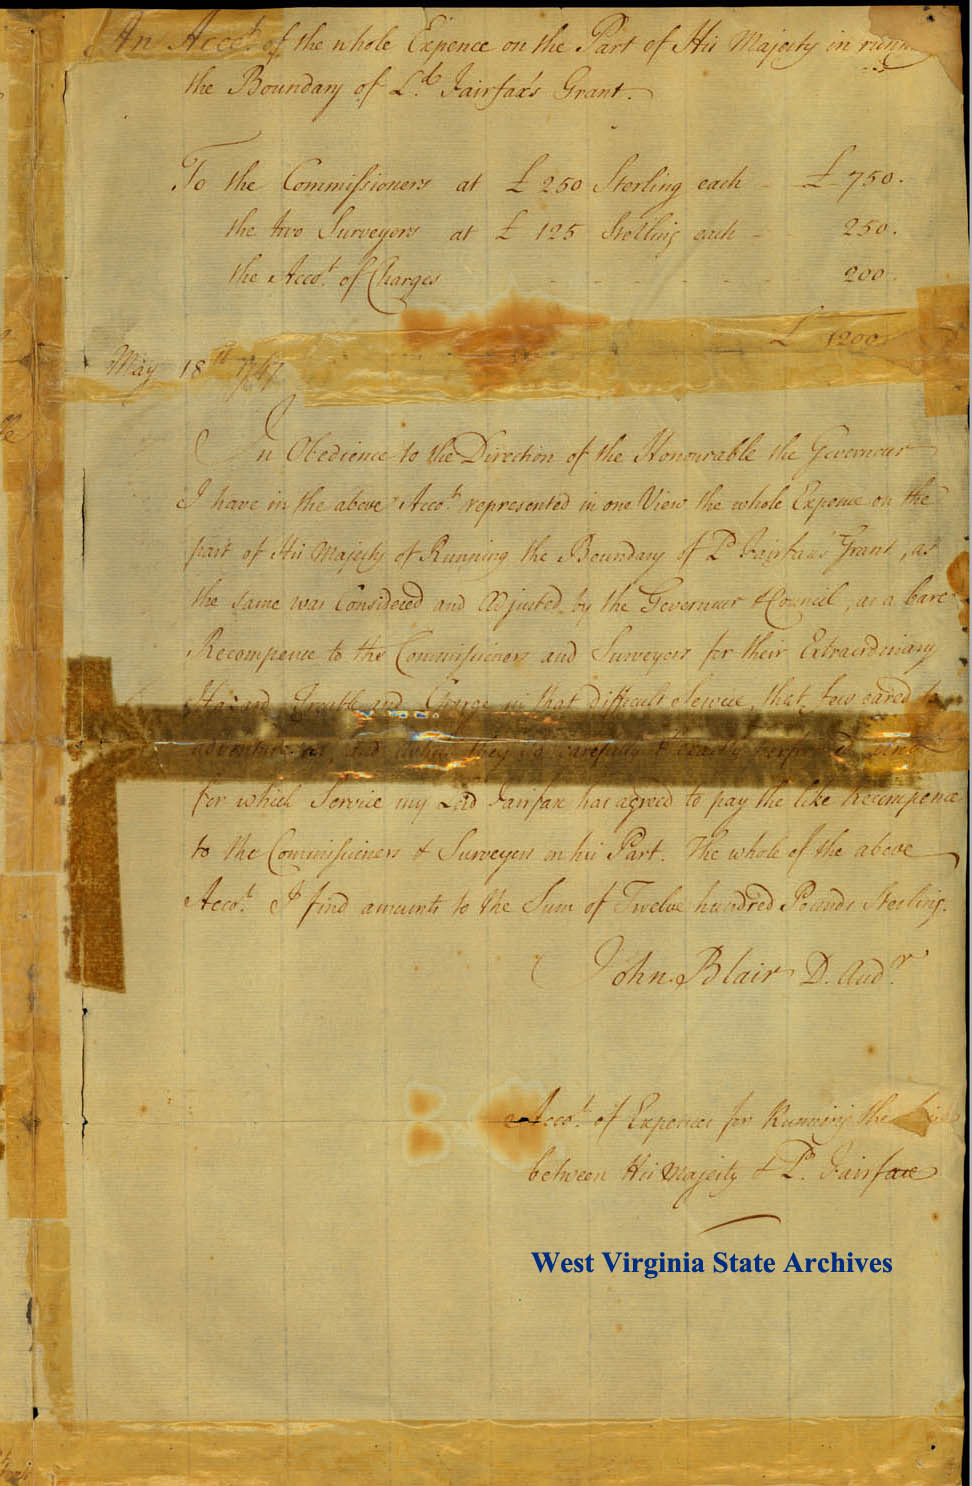 An Acco.t of the whole Expence on the Part of His Majesty in
the Boundary of L.d Fairfax's Grant.
To the Commissioners at £ 250 Sterling each £ 750.
the two Surveyors at £ 125 Sterling each 250.
the Acco.t of Charges 200.
£ 1200
May 18th 1747
In Obedience to the Direction of the Honourable the Governour
I have in the above Acco.t represented in one View the whole Expence on the
part of His Majesty of Running the Boundary of L.d Fairfax's Grant, as
the same was Considered and Adjusted by the Governour & Council, as a bare
Recompence to the Commissioners and Surveyors for their Extraordinary
Hazard Trouble and Charge in that difficult Service, that few cared to
adventure and they so carefully & exactly
for which Service my Lord Fairfax has agreed to pay the like Recompence
to the Commissioners & Surveyors on his Part. The whole of the above
Acco.t I find amounts to the Sum of Twelve hundred Pounds Sterling.
John Blair D. Aud.r
Acco.t of Expences for Running the
between His Majesty & L.d Fairfax
West Virginia State Archives